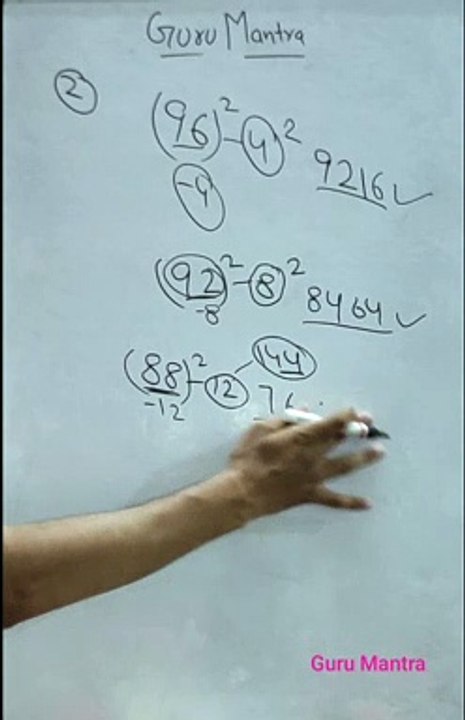 Guru Mantra
2
(96)² - 4² 9216 ✓
-4
(92)² - 8² 8464 ✓
-8
144
(88)² - 12 76
-12
Guru Mantra